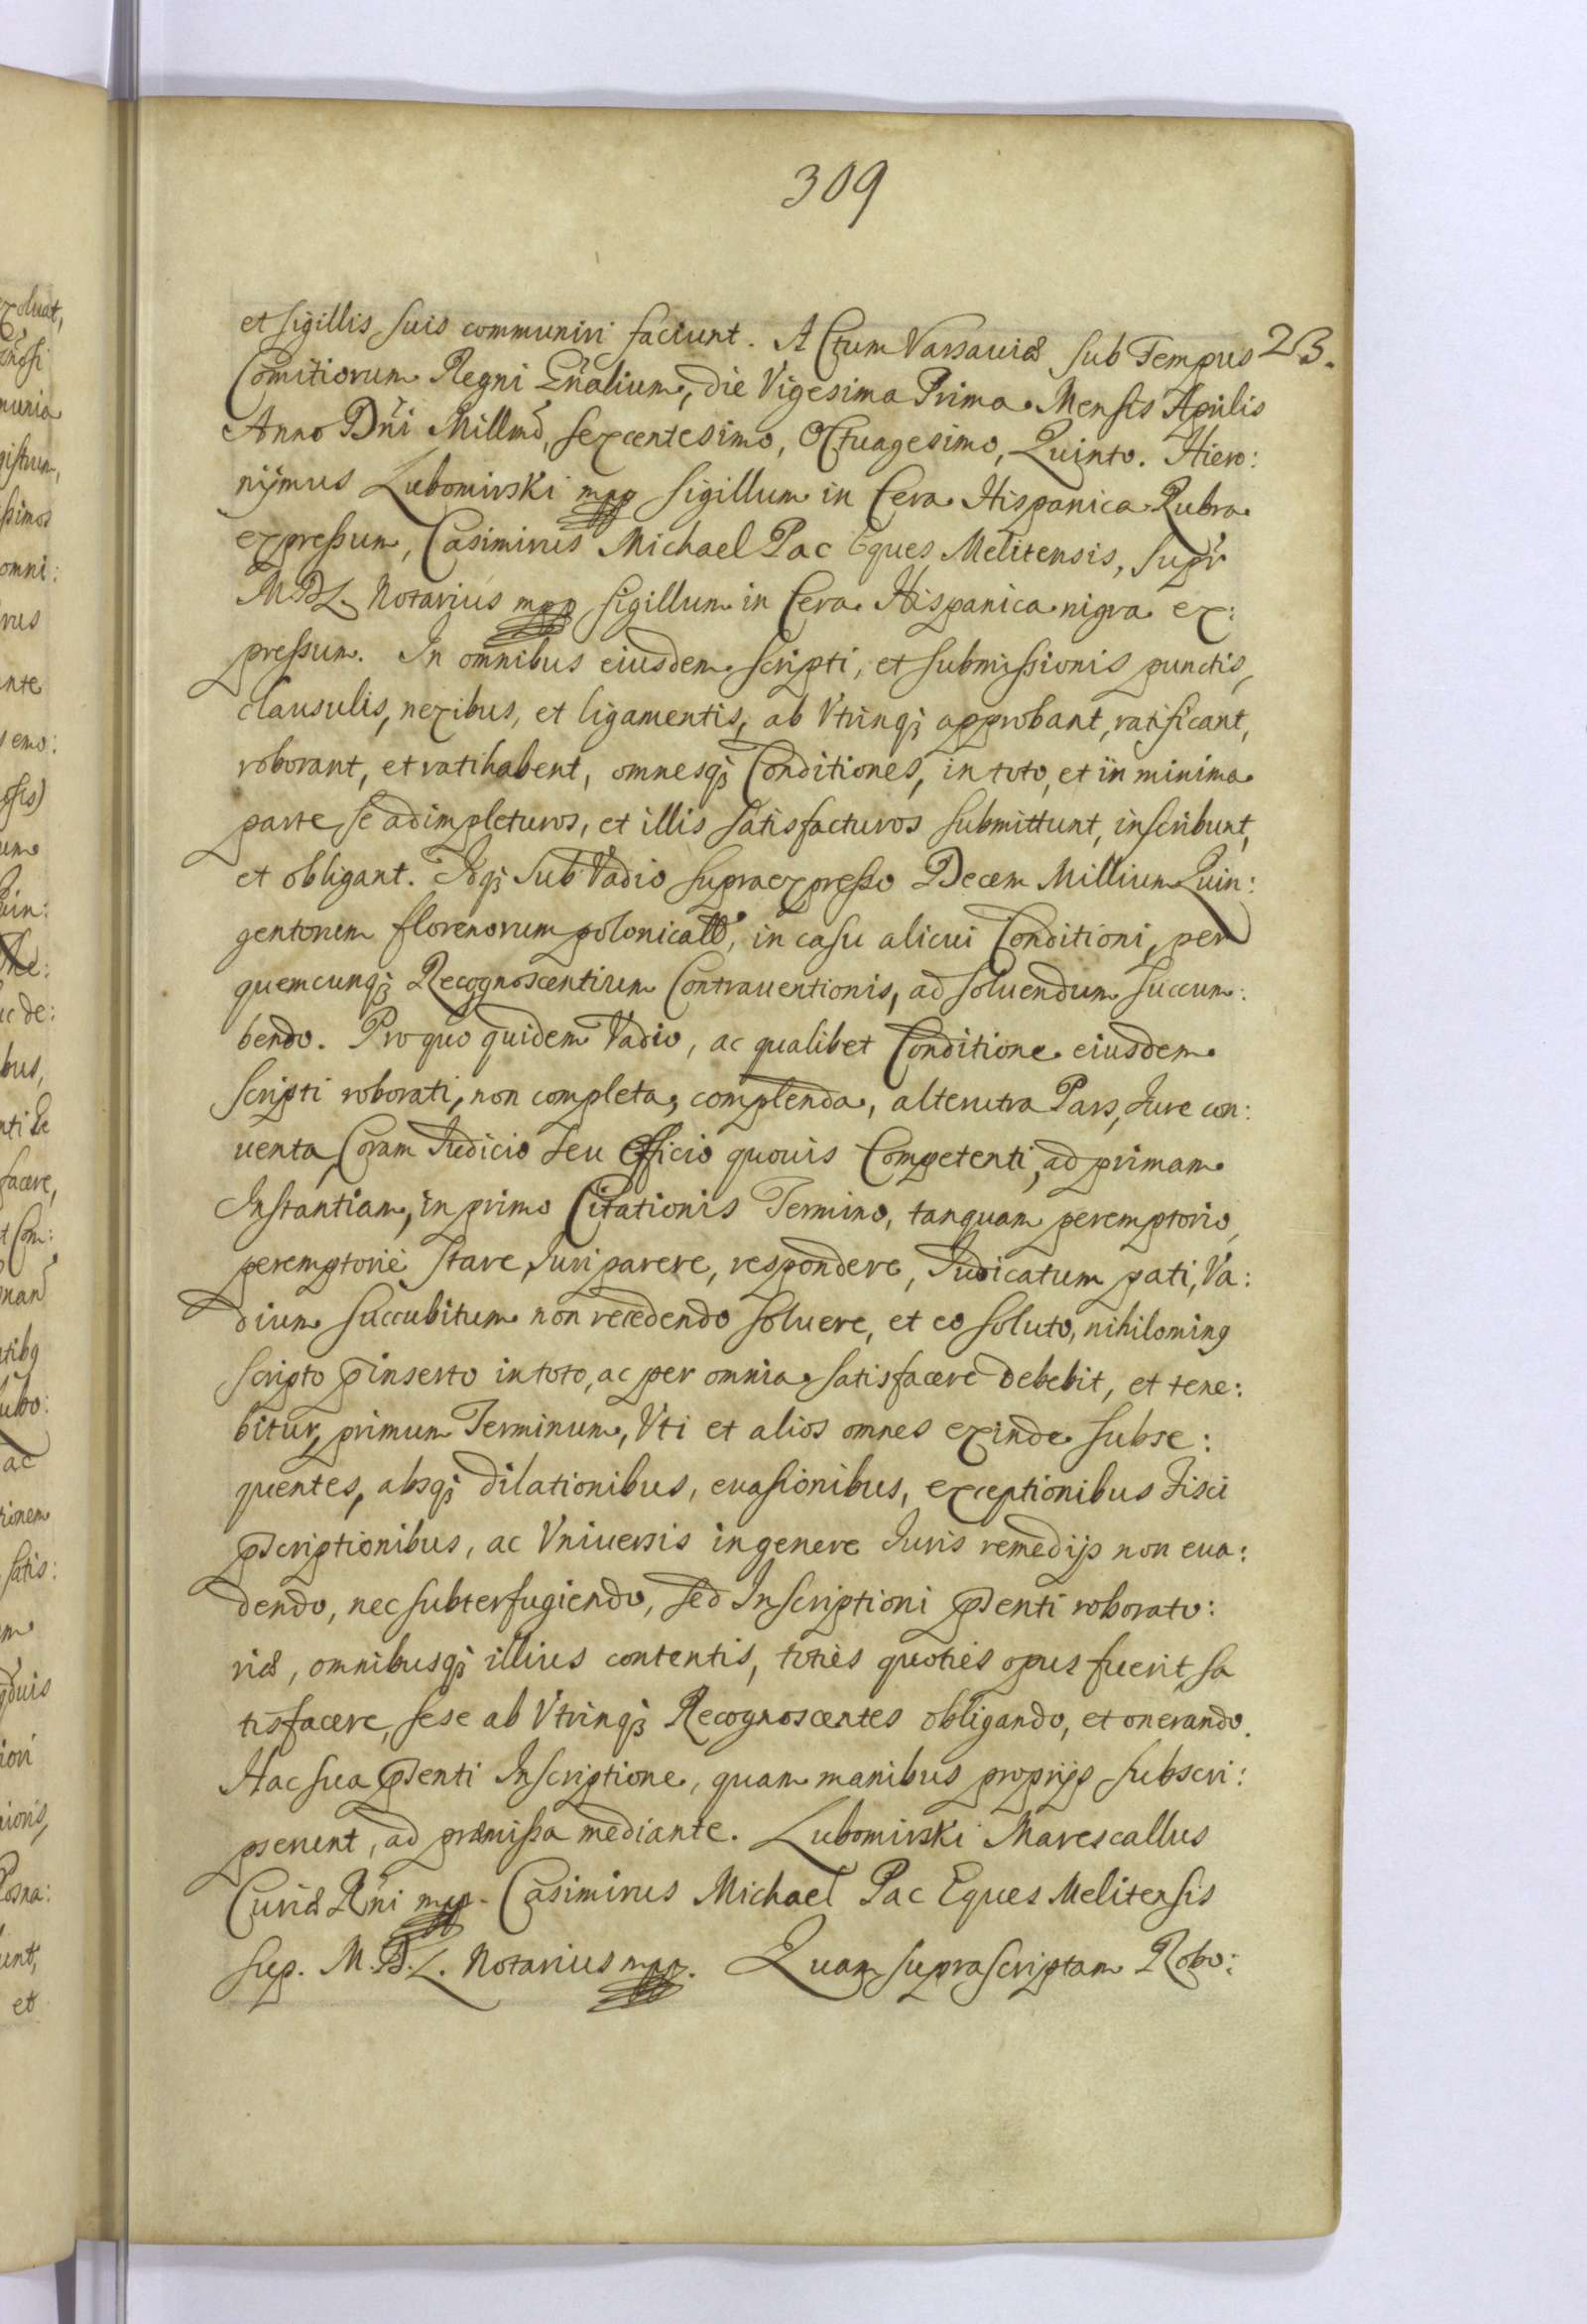 309
et sigillis suis communiri faciunt. Actum Varsaviæ sub Tempus 23.
Comitiorum Regni Gñalium, die Vigesima Prima Mensis Aprilis
Anno Dñi Millmõ, sexcentesimo, Octuagesimo, Quinto. Hiero:
nÿmus Lubomirski mpp sigillum in Cera Hispanica Rubra
expressum, Casimirus Michael Pac Eques Melitensis, supr
M.D.L. Notarius mpp sigillum in Cera Hispanica nigra ex:
pressum. In omnibus eiusdem scripti, et submissionis punctis,
clausulis, nexibus, et ligamentis, ab Vtrinq; approbant, ratificant,
roborant, et ratihabent, omnesq; Conditiones, in toto, et in minima
parte, se adimpleturos, et illis satisfacturos submittunt, inscribunt,
et obligant. Idq; sub Vadio supraexpresso Decem Millium Quin:
gentorum florenorum polonicaliũ, in casu alicui Conditioni, per
quemcunq; Recognoscentium Contrauentionis, ad soluendum succum:
bendo. Pro quo quidem Vadio, ac qualibet Conditione eiusdem
scripti roborati, non completa, complenda, alterutra Pars, Iure con:
uenta, Coram Iudicio seu Officio quouis Competenti, ad primam
Instantiam, in primo Citationis Termino, tanquam peremptorio,
peremptoriè stare, Iuri parere, respondere, Iudicatum pati, Va:
dium succubitum non recedendo soluere, et eo soluto, nihilominq
scripto p̃inserto in toto, ac per omnia satisfacere debebit, et tene:
bitur, primum Terminum, Vti et alios omnes exinde subse:
quentes, absq; dilationibus, euasionibus, exceptionibus fisci
p̃scriptionibus, ac Vniuersis in genere Iuris remedijs non eua:
dendo, nec subterfugiendo, sed Inscriptioni p̃senti roborato:
riæ, omnibusq; illius contentis, totiès quotiès opus fuerit, sa
tisfacere, sese ab Vtrinq; Recognoscentes obligando, et onerando.
Hac sua p̃senti Inscriptione, quam manibus proprijs subscri:
pserunt, ad præmissa mediante. Lubomirski Marescallus
Curiæ Rñi mpp. Casimirus Michael Pac Eques Melitensis
sup. M.D.L. Notarius mpp. Quam suprascriptam Robo: